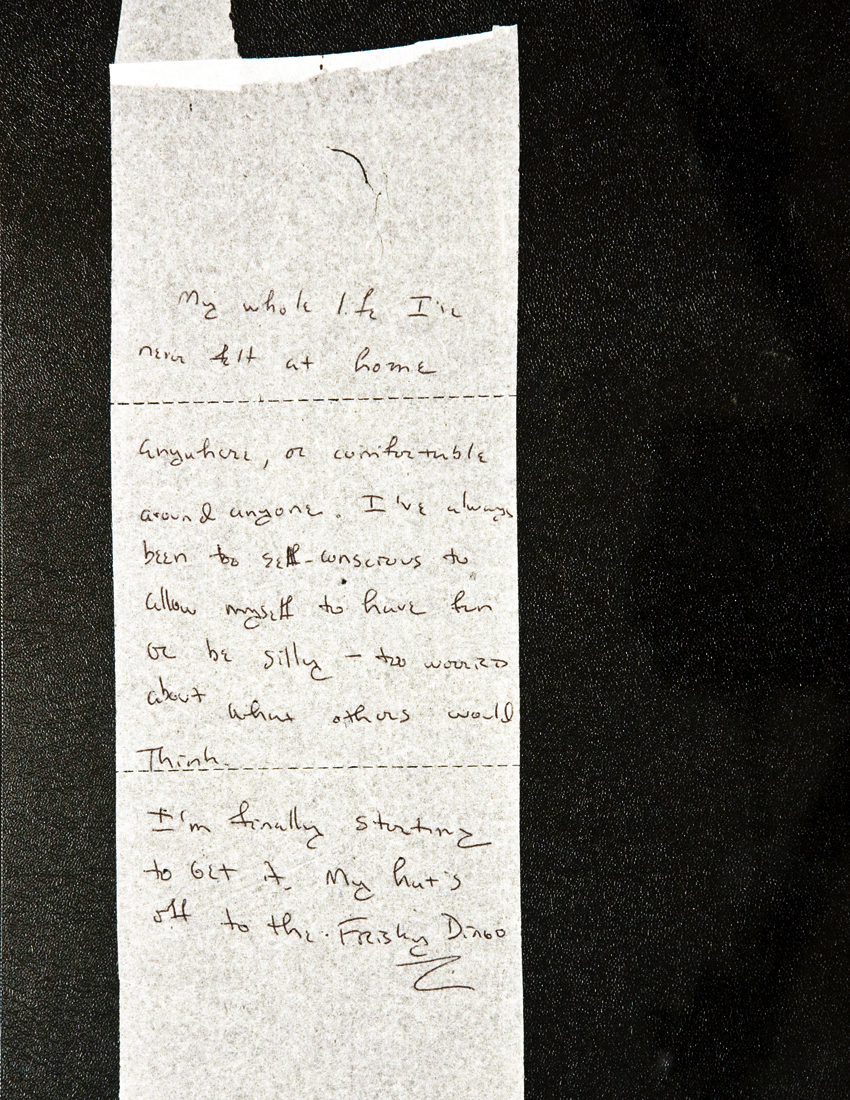 My whole life I've
never felt at home
anywhere, or comfortable
around anyone. I've always
been too self-conscious to
allow myself to have fun
or be silly – too worried
about what others would
Think.
I'm finally starting
to Get it. My hat's
off to the Frisky Dingo